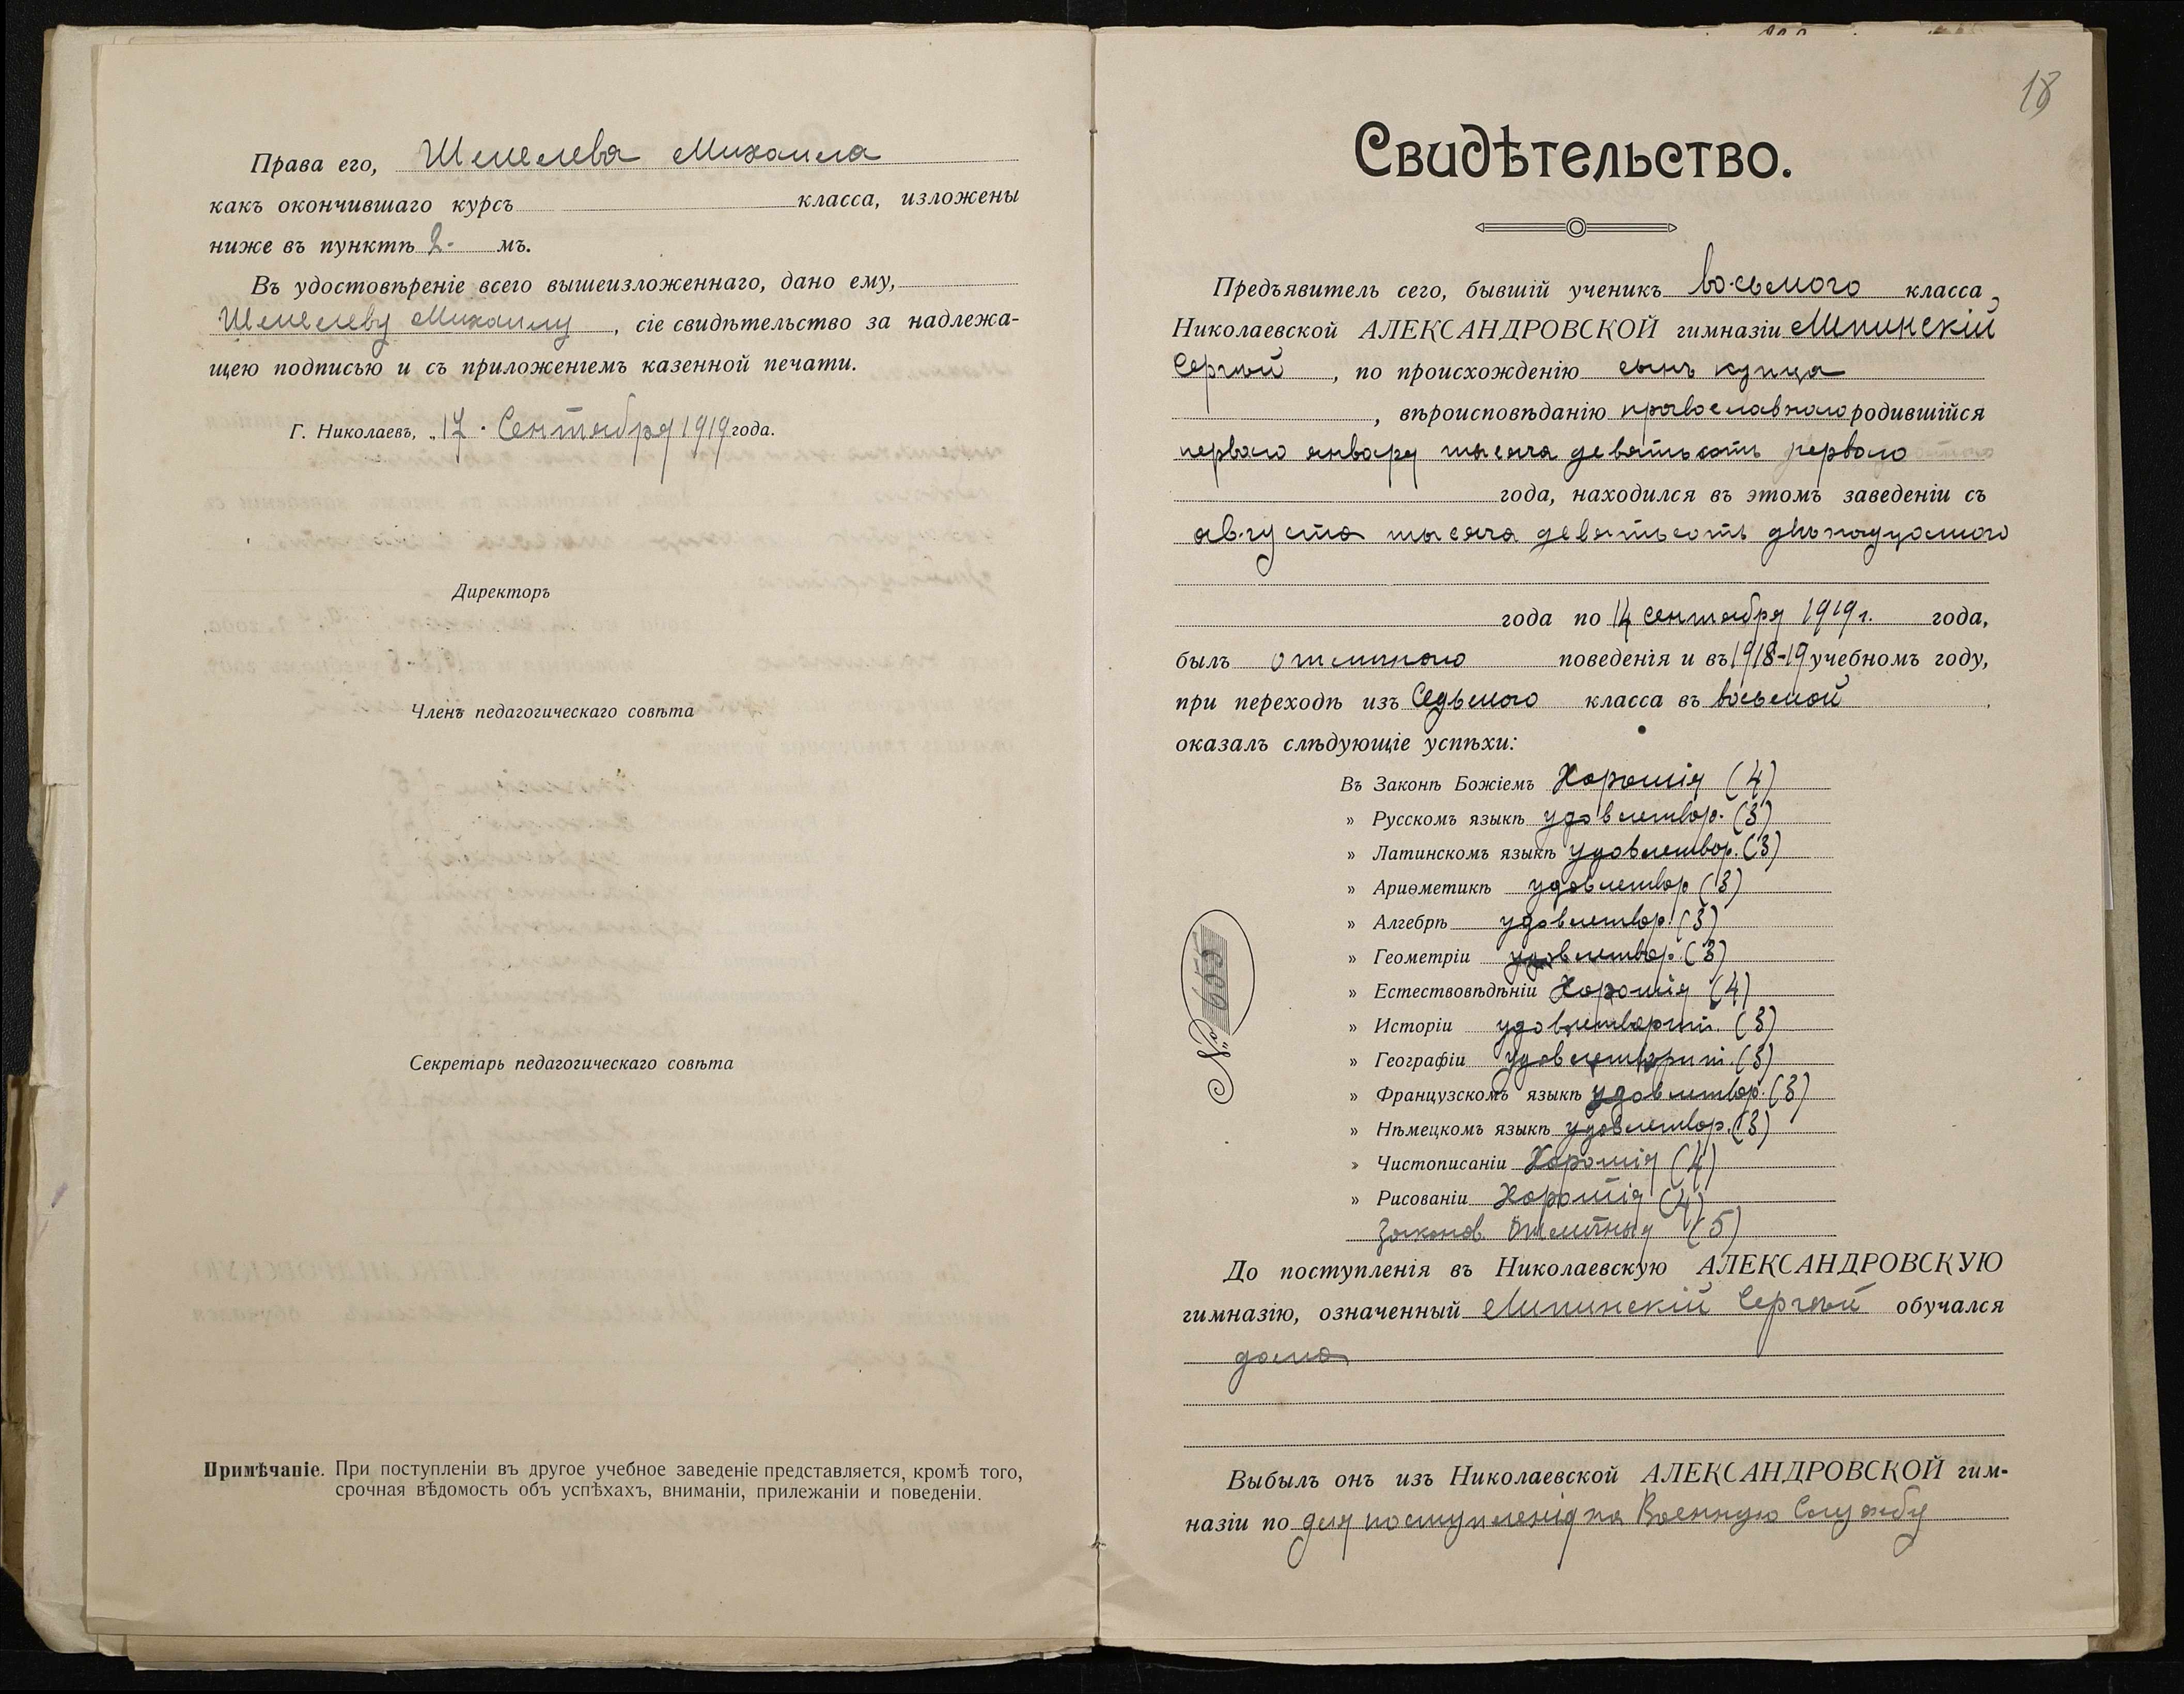 Права его, Шепелева Михаила
какъ окончившаго курсъ класса, изложены
ниже въ пунктѣ 2- мъ.
Въ удостовѣреніе всего вышеизложеннаго, дано ему,
Шепелеву Михаилу, сіе свидѣтельство за надлежа-
щею подписью и съ приложеніемъ казенной печати.
Г. Николаевъ, „17 · Сентября 1919 года.
Директоръ
Членъ педагогическаго совѣта
Секретарь педагогическаго совѣта
Примѣчаніе. При поступленіи въ другое учебное заведеніе представляется, кромѣ того,
срочная вѣдомость объ успѣхахъ, вниманіи, прилежаніи и поведеніи.
18
Свидѣтельство.
Предъявитель сего, бывшій ученикъ восьмого класса
Николаевской АЛЕКСАНДРОВСКОЙ гимназіи Липинскій
Сергѣй, по происхожденію сынъ купца
, вѣроисповѣданію православнаго родившійся
перваго января тысяча девятьсотъ перваго
года, находился въ этомъ заведеніи съ
августа тысяча девятьсотъ двѣнадцатого
года по 14 сентября 1919 г. года,
былъ отличнаго поведенія и въ 1918-19 учебномъ году,
при переходѣ изъ седьмого класса въ восьмой
оказалъ слѣдующіе успѣхи:
Въ Законѣ Божіемъ Хорошія (4)
» Русскомъ языкѣ удовлетвор. (3)
» Латинскомъ языкѣ удовлетвор. (3)
» Ариѳметикѣ удовлетвор (3)
» Алгебрѣ удовлетвор. (3)
» Геометріи удовлетвор. (3)
» Естествовѣдѣніи Хорошія (4)
» Исторіи удовлетворит. (3)
» Географіи удовлетворит. (3)
» Французскомъ языкѣ удовлетвор. (3)
» Нѣмецкомъ языкѣ удовлетвор. (3)
» Чистописаніи Хорошія (4)
» Рисованіи Хорошія (4)
Законов. Отличныя (5)
№ 655
До поступленія въ Николаевскую АЛЕКСАНДРОВСКУЮ
гимназію, означенный Липинскій Сергѣй обучался
дома
Выбылъ онъ изъ Николаевской АЛЕКСАНДРОВСКОЙ гим-
назіи по для поступленія на Военную Службу